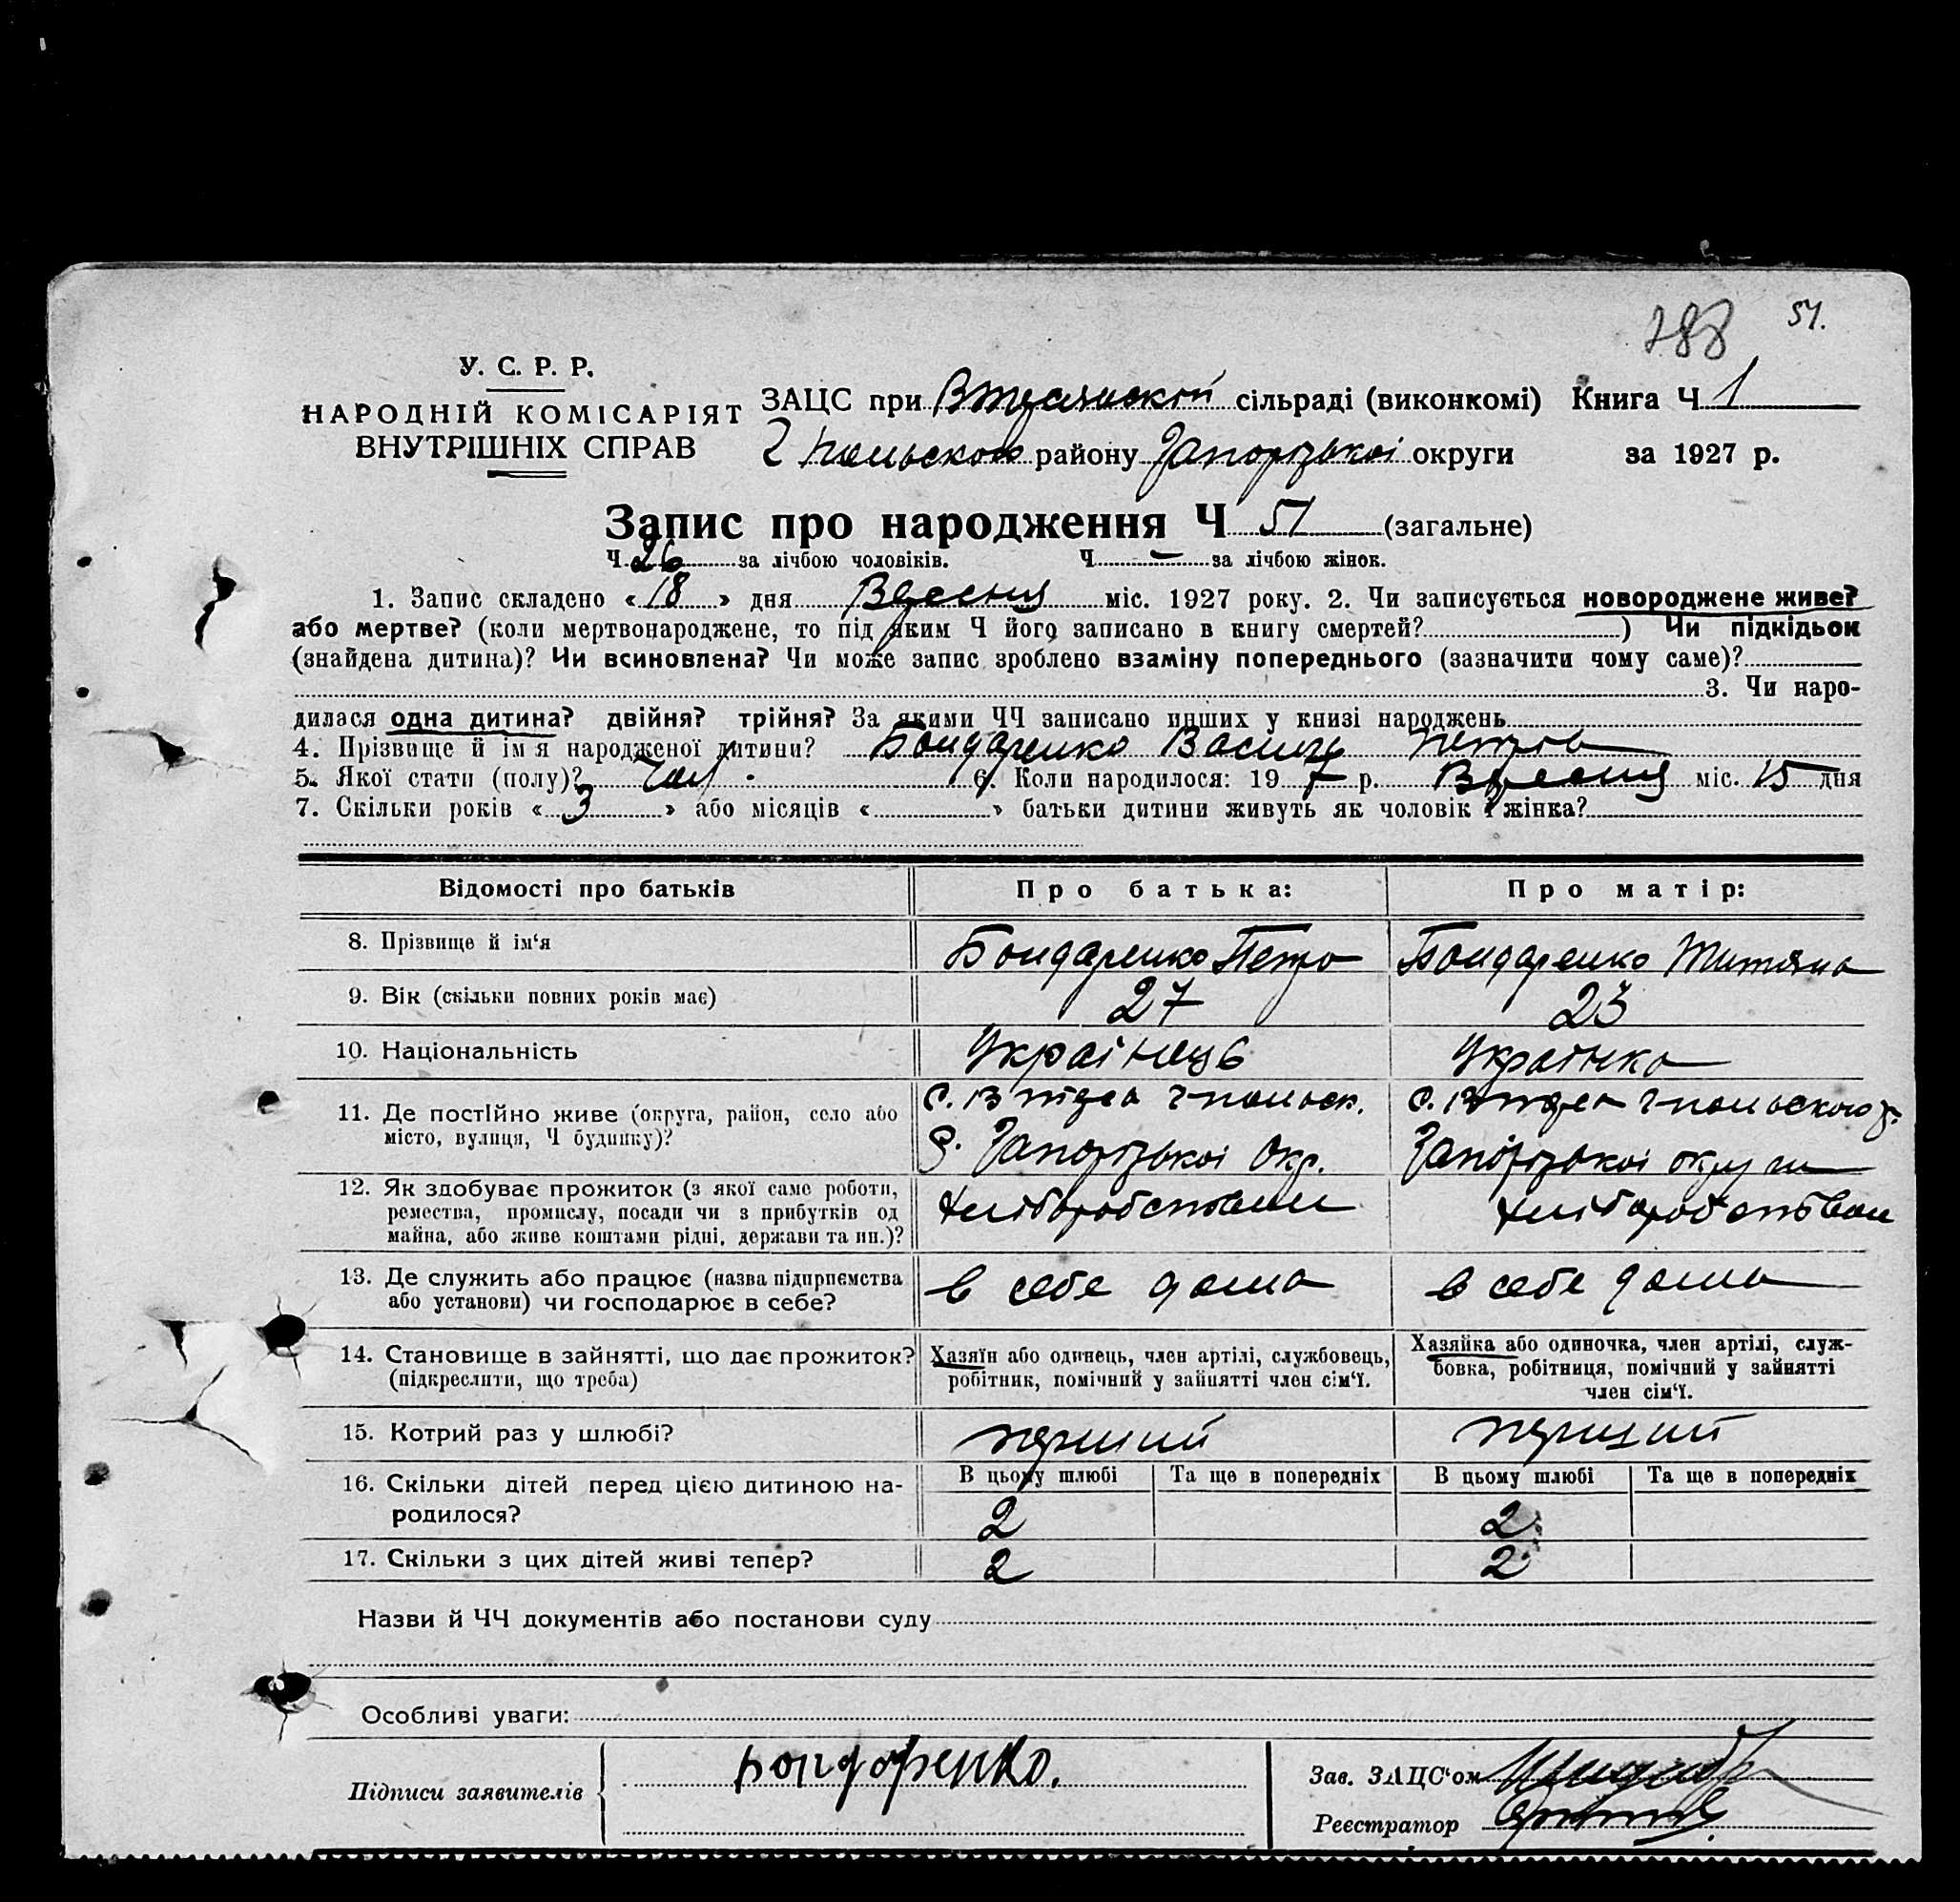 788 51.
У. С. Р. Р.
НАРОДНІЙ КОМІСАРІЯТ
ВНУТРІШНІХ СПРАВ
ЗАЦС при сільраді (виконкомі) Книга Ч 1
району Запорізької округи за 1927 р.
Запис про народження Ч 51 (загальне)
Ч 26 за лічбою чоловіків. Ч — за лічбою жінок.
1. Запис складено « 18 » дня Вересня міс. 1927 року. 2. Чи записується новороджене живе?
або мертве? (коли мертвонароджене, то під яким Ч його записано в книгу смертей? ) Чи підкідьок
(знайдена дитина)? Чи всиновлена? Чи може запис зроблено взаміну попереднього (зазначити чому саме)?
3. Чи наро-
дилася одна дитина? двійня? трійня? За якими ЧЧ записано инших у книзі народжень
4. Прізвище й ім'я народженої дитини? Бондаренко Василь Петров
5. Якої стати (полу)? чол. 6. Коли народилося: 19 7 р. Вересня міс. 15 дня
7. Скільки років « 3 » або місяців « » батьки дитини живуть як чоловік й жінка?
Відомості про батьків Про батька: Про матір:
8. Прізвище й ім'я Бондаренко Петро Бондаренко Титяна
9. Вік (скільки повних років має) 27 23
10. Національність Українець Українка
11. Де постійно живе (округа, район, село або
місто, вулиця, Ч будинку)?
Запорізької Окр. Запорізької округи
12. Як здобуває прожиток (з якої саме роботи,
ремества, промислу, посади чи з прибутків од
майна, або живе коштами рідні, держави та ин.)?
хліборобством хліборобством
13. Де служить або працює (назва підприємства
або установи) чи господарює в себе?
в себе дома в себе дома
14. Становище в зайнятті, що дає прожиток?
(підкреслити, що треба)
Хазяїн або одинець, член артілі, службовець,
робітник, помічний у зайнятті член сім'ї.
Хазяйка або одиночка, член артілі, служ-
бовка, робітниця, помічний у зайнятті
член сім'ї.
15. Котрий раз у шлюбі? перший перший
В цьому шлюбі Та ще в попередніх В цьому шлюбі Та ще в попередніх
16. Скільки дітей перед цією дитиною на-
родилося?
2 2
17. Скільки з цих дітей живі тепер? 2 2
Назви й ЧЧ документів або постанови суду
Особливі уваги:
Підписи заявителів Бондаренко.
Зав. ЗАЦС'ом
Реєстратор